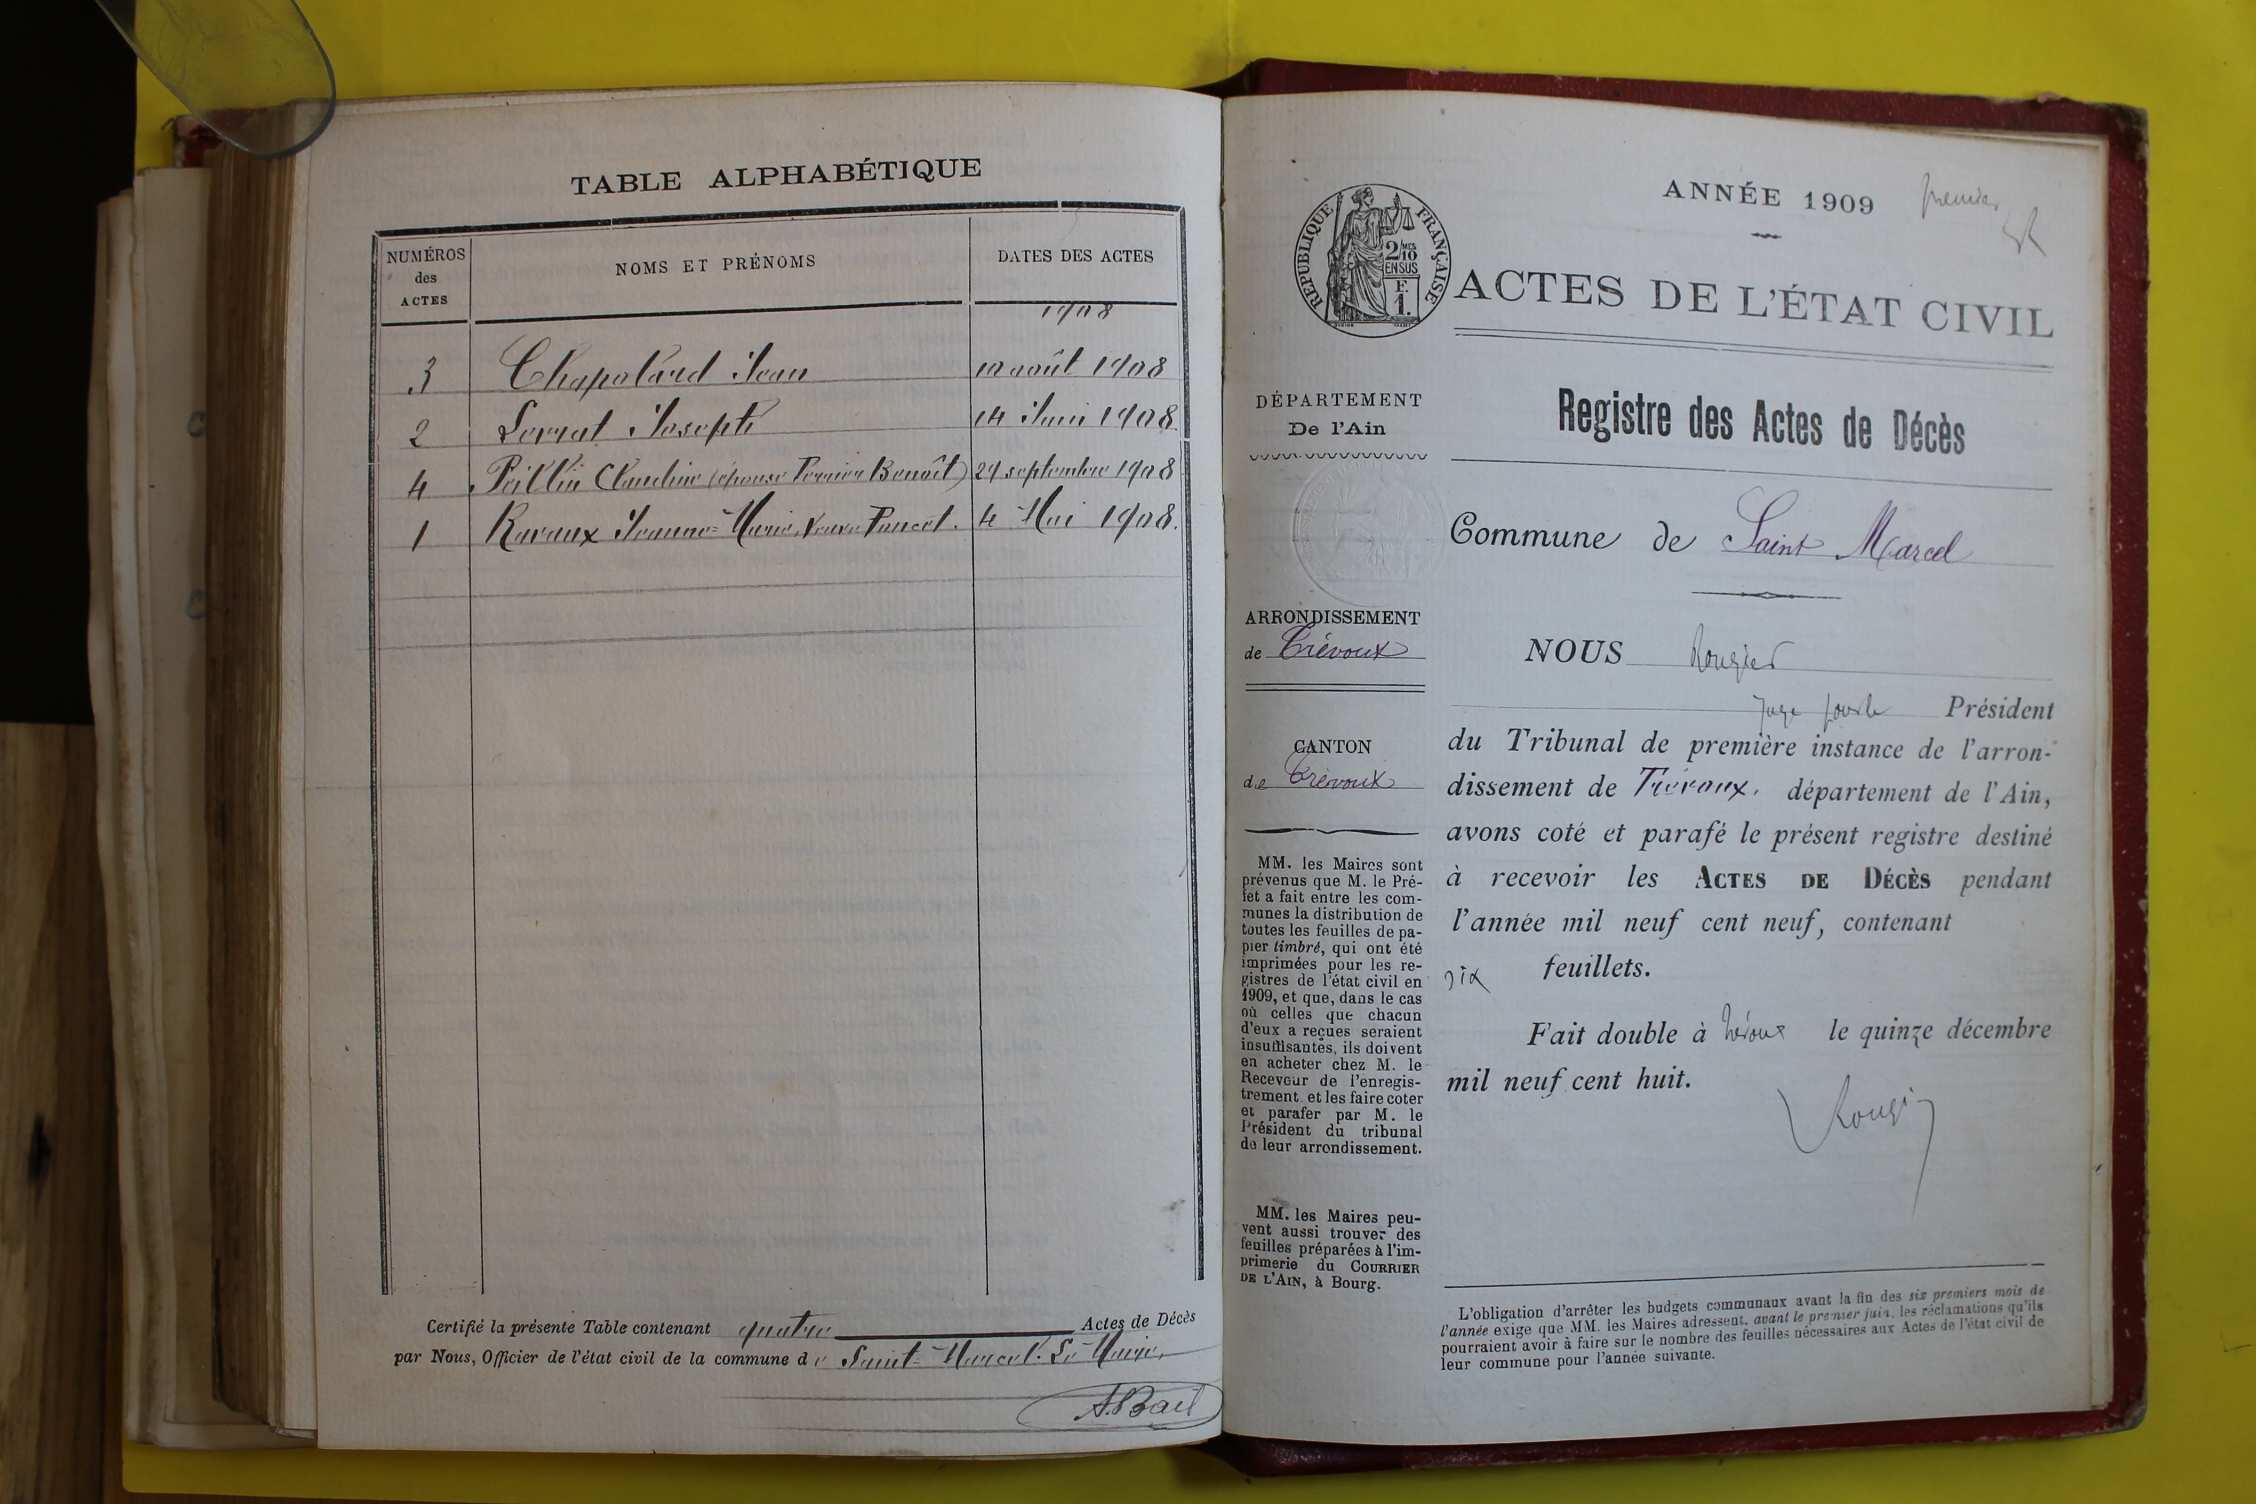 TABLE ALPHABÉTIQUE
NUMÉROS des ACTES
NOMS ET PRÉNOMS
DATES DES ACTES
1908
3 Chapolard Jean 10 août 1908
2 Joseph 14 Juin 1908
4 Claudine (épouse Perrier Benoît) 29 septembre 1908
1 Ravaux Jeanne-Marie, Veuve Poncet. 4 Mai 1908.
Certifié la présente Table contenant quatre Actes de Décès
par Nous, Officier de l'état civil de la commune de Saint-Marcel. Le Maire,
A. Bail
ANNÉE 1909
premier
RÉPUBLIQUE FRANÇAISE
2/10 MES
EN SUS
F.
1.
ACTES DE L'ÉTAT CIVIL
DÉPARTEMENT
De l'Ain
ARRONDISSEMENT
de Trévoux
CANTON
de Trévoux
MM. les Maires sont
prévenus que M. le Pré-
fet a fait entre les com-
munes la distribution de
toutes les feuilles de pa-
pier timbré, qui ont été
imprimées pour les re-
gistres de l'état civil en
1909, et que, dans le cas
où celles que chacun
d'eux a reçues seraient
insuffisantes, ils doivent
en acheter chez M. le
Receveur de l'enregis-
trement et les faire coter
et parafer par M. le
Président du tribunal
de leur arrondissement.
MM. les Maires peu-
vent aussi trouver des
feuilles préparées à l'im-
primerie du COURRIER
DE L'AIN, à Bourg.
Registre des Actes de Décès
Commune de Saint Marcel
NOUS Rougier
Juge pour le Président
du Tribunal de première instance de l'arron-
dissement de Trévoux, département de l'Ain,
avons coté et parafé le présent registre destiné
à recevoir les ACTES DE DÉCÈS pendant
l'année mil neuf cent neuf, contenant
six feuillets.
Fait double à Trévoux le quinze décembre
mil neuf cent huit.
Rougier
L'obligation d'arrêter les budgets communaux avant la fin des six premiers mois de
l'année exige que MM. les Maires adressent, avant le premier juin, les réclamations qu'ils
pourraient avoir à faire sur le nombre des feuilles nécessaires aux Actes de l'état civil de
leur commune pour l'année suivante.